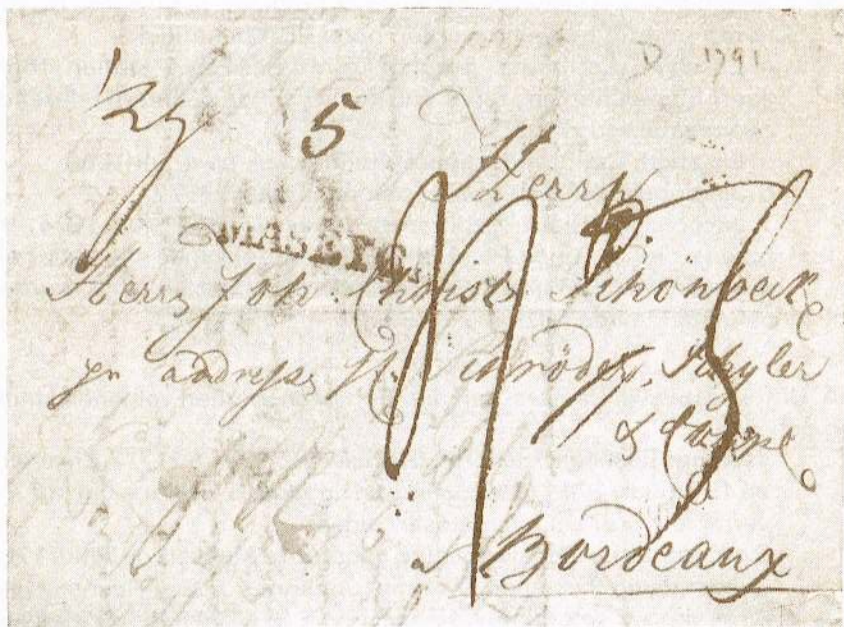 D 1791
5
Herrn
Herrn Joh: Christ: Schönbeck
pr addresse H. Schröder, Schyler
& Comp
a Bordeaux